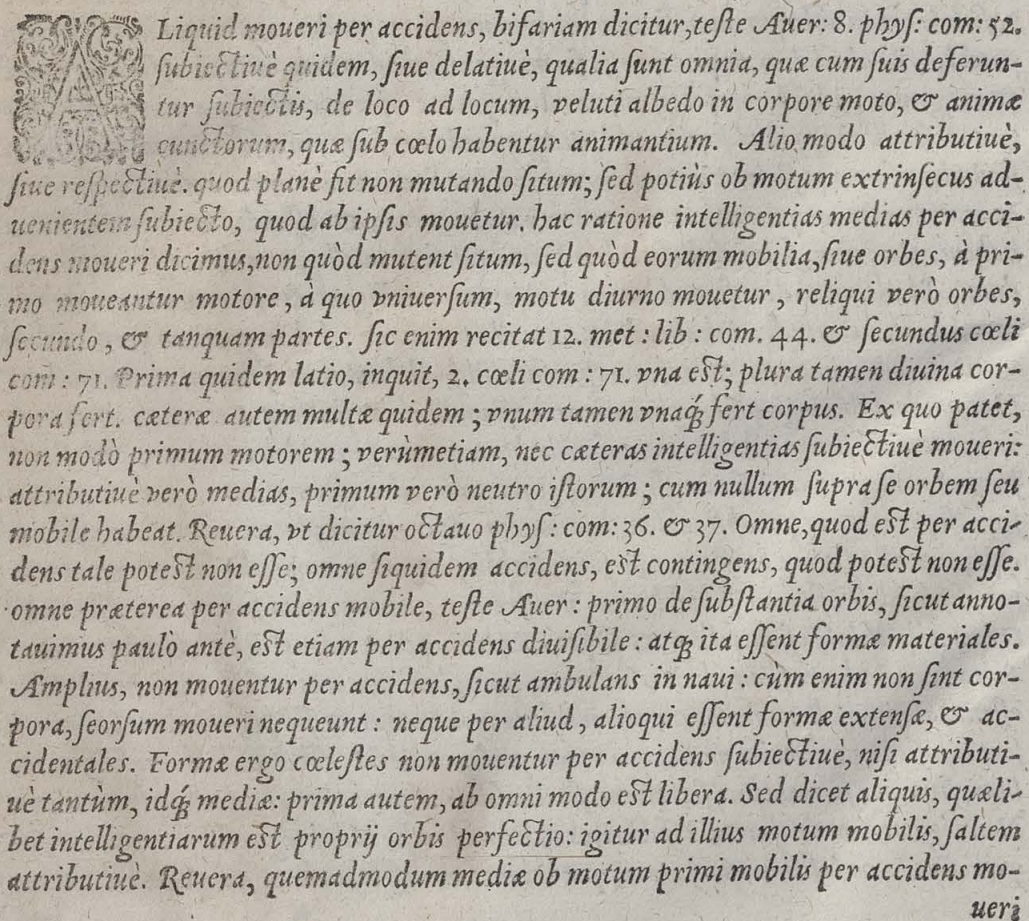 ALiquid moueri per accidens, bifariam dicitur, teste Auer: 8. phys: com: 52.
subiectiuè quidem, siue delatiuè, qualia sunt omnia, quæ cum suis deferun-
tur subiectis, de loco ad locum, veluti albedo in corpore moto, & animæ
cunctorum, quæ sub cœlo habentur animantium. Alio modo attributiuè,
siue respectiuè. quod planè fit non mutando situm; sed potiùs ob motum extrinsecus ad-
uenientem subiecto, quod ab ipsis mouetur. hac ratione intelligentias medias per acci-
dens moueri dicimus, non quòd mutent situm, sed quòd eorum mobilia, siue orbes, à pri-
mo moueantur motore, à quo vniuersum, motu diurno mouetur, reliqui verò orbes,
secundo, & tanquam partes. sic enim recitat 12. met: lib: com. 44. & secundus cœli
com: 71. Prima quidem latio, inquit, 2. cœli com: 71. vna est; plura tamen diuina cor-
pora fert. cæteræ autem multæ quidem; vnum tamen vnaq́; fert corpus. Ex quo patet,
non modò primum motorem; verùmetiam, nec cæteras intelligentias subiectiuè moueri:
attributiuè verò medias, primum verò neutro istorum; cum nullum supra se orbem seu
mobile habeat. Reuera, vt dicitur octauo phys: com: 36. & 37. Omne, quod est per acci-
dens tale potest non esse; omne siquidem accidens, est contingens, quod potest non esse.
omne præterea per accidens mobile, teste Auer: primo de substantia orbis, sicut anno-
tauimus paulò antè, est etiam per accidens diuisibile: atq; ita essent formæ materiales.
Amplius, non mouentur per accidens, sicut ambulans in naui: cùm enim non sint cor-
pora, seorsum moueri nequeunt: neque per aliud, alioqui essent formæ extensæ, & ac-
cidentales. Formæ ergo cœlestes non mouentur per accidens subiectiuè, nisi attributi-
uè tantùm, idq́; mediæ: prima autem, ab omni modo est libera. Sed dicet aliquis, quæli-
bet intelligentiarum est proprij orbis perfectio: igitur ad illius motum mobilis, saltem
attributiuè. Reuera, quemadmodum mediæ ob motum primi mobilis per accidens mo-
ueri